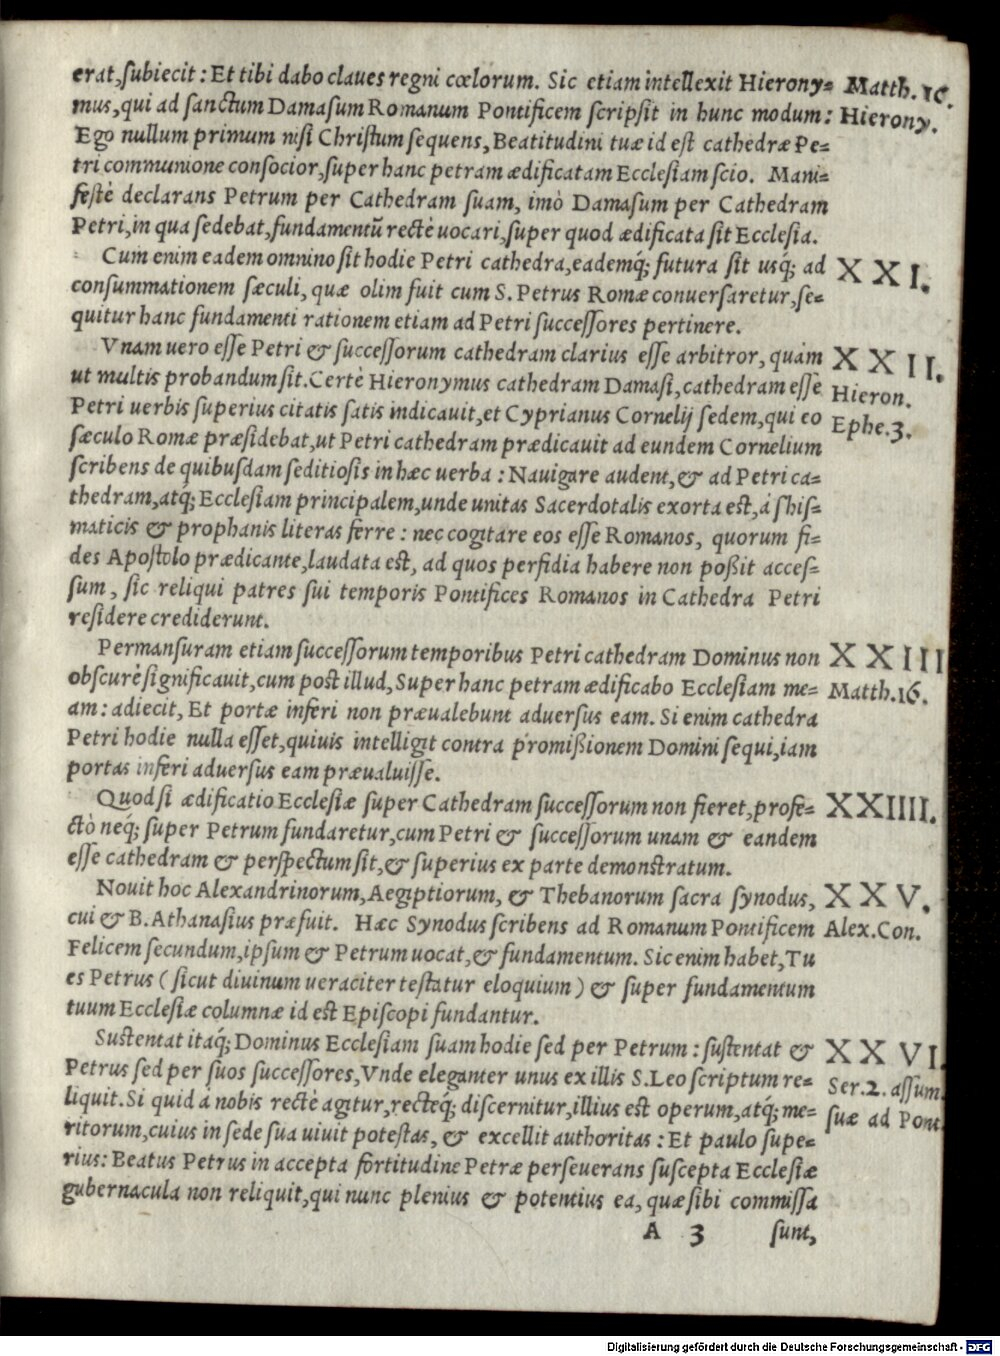 erat,ſubiecit: Et tibi dabo claues regni cœlorum. Sic etiam intellexit Hierony= Matth. 16.
mus,qui ad ſanctum Damaſum Romanum Pontificem ſcripſit in hunc modum: Hierony.
Ego nullum primum niſi Chriſtum ſequens, Beatitudini tuæ id eſt cathedræ Pe=
tri communione conſocior,ſuper hanc petram ædificatam Eccleſiam ſcio. Mani=
feſtè declarans Petrum per Cathedram ſuam, imò Damaſum per Cathedram
Petri,in qua ſedebat,fundamentũ rectè uocari,ſuper quod ædificata ſit Eccleſia.
Cum enim eadem omnino ſit hodie Petri cathedra,eademq́; futura ſit uſq́; ad XXI.
conſummationem ſæculi, quæ olim fuit cum S. Petrus Romæ conuerſaretur,ſe=
quitur hanc fundamenti rationem etiam ad Petri ſucceſſores pertinere.
Vnam uero eſſe Petri & ſucceſſorum cathedram clarius eſſe arbitror, quàm XXII.
ut multis probandum ſit. Certè Hieronymus cathedram Damaſi,cathedram eſſe Hieron.
Petri uerbis ſuperius citatis ſatis indicauit,et Cyprianus Cornelij ſedem,qui eo Ephe.3.
ſæculo Romæ præſidebat,ut Petri cathedram prædicauit ad eundem Cornelium
ſcribens de quibuſdam ſeditioſis in hæc uerba: Nauigare audent,& ad Petri ca=
thedram,atq́; Eccleſiam principalem,unde unitas Sacerdotalis exorta eſt,á ſhiſ=
maticis & prophanis literas ferre: nec cogitare eos eſſe Romanos, quorum fi=
des Apoſtolo prædicante,laudata eſt, ad quos perfidia habere non poßit acceſ=
ſum, ſic reliqui patres ſui temporis Pontifices Romanos in Cathedra Petri
reſidere crediderunt.
Permanſuram etiam ſucceſſorum temporibus Petri cathedram Dominus non XXIII
obſcurè ſignificauit,cum poſt illud,Super hanc petram ædificabo Eccleſiam me= Matth.16.
am: adiecit, Et portæ inferi non præualebunt aduerſus eam. Si enim cathedra
Petri hodie nulla eſſet,quiuis intelligit contra promißionem Domini ſequi,iam
portas inferi aduerſus eam præualuiſſe.
Quod ſi ædificatio Eccleſiæ ſuper Cathedram ſucceſſorum non fieret,profe= XXIIII.
ctò neq́; ſuper Petrum fundaretur,cum Petri & ſucceſſorum unam & eandem
eſſe cathedram & perſpectum ſit,& ſuperius ex parte demonſtratum.
Nouit hoc Alexandrinorum,Aegiptiorum, & Thebanorum ſacra ſynodus, XXV.
cui & B. Athanaſius præfuit. Hæc Synodus ſcribens ad Romanum Pontificem Alex.Con.
Felicem ſecundum,ipſum & Petrum uocat,& fundamentum. Sic enim habet,Tu
es Petrus (ſicut diuinum ueraciter teſtatur eloquium) & ſuper fundamentum
tuum Eccleſiæ columnæ id eſt Epiſcopi fundantur.
Suſtentat itaq́; Dominus Eccleſiam ſuam hodie ſed per Petrum: ſuſtentat & XXVI.
Petrus ſed per ſuos ſucceſſores,Vnde eleganter unus ex illis S. Leo ſcriptum re= Ser.2. aſſum.
liquit. Si quid á nobis rectè agitur,recteq́; diſcernitur,illius eſt operum,atq́; me= ſuæ ad Pont.
ritorum,cuius in ſede ſua uiuit poteſtas, & excellit authoritas: Et paulo ſupe=
rius: Beatus Petrus in accepta fortitudine Petræ perſeuerans ſuſcepta Eccleſiæ
gubernacula non reliquit,qui nunc plenius & potentius ea, quæ ſibi commiſſa
A 3 ſunt,
Digitalisierung gefördert durch die Deutsche Forschungsgemeinschaft - DFG